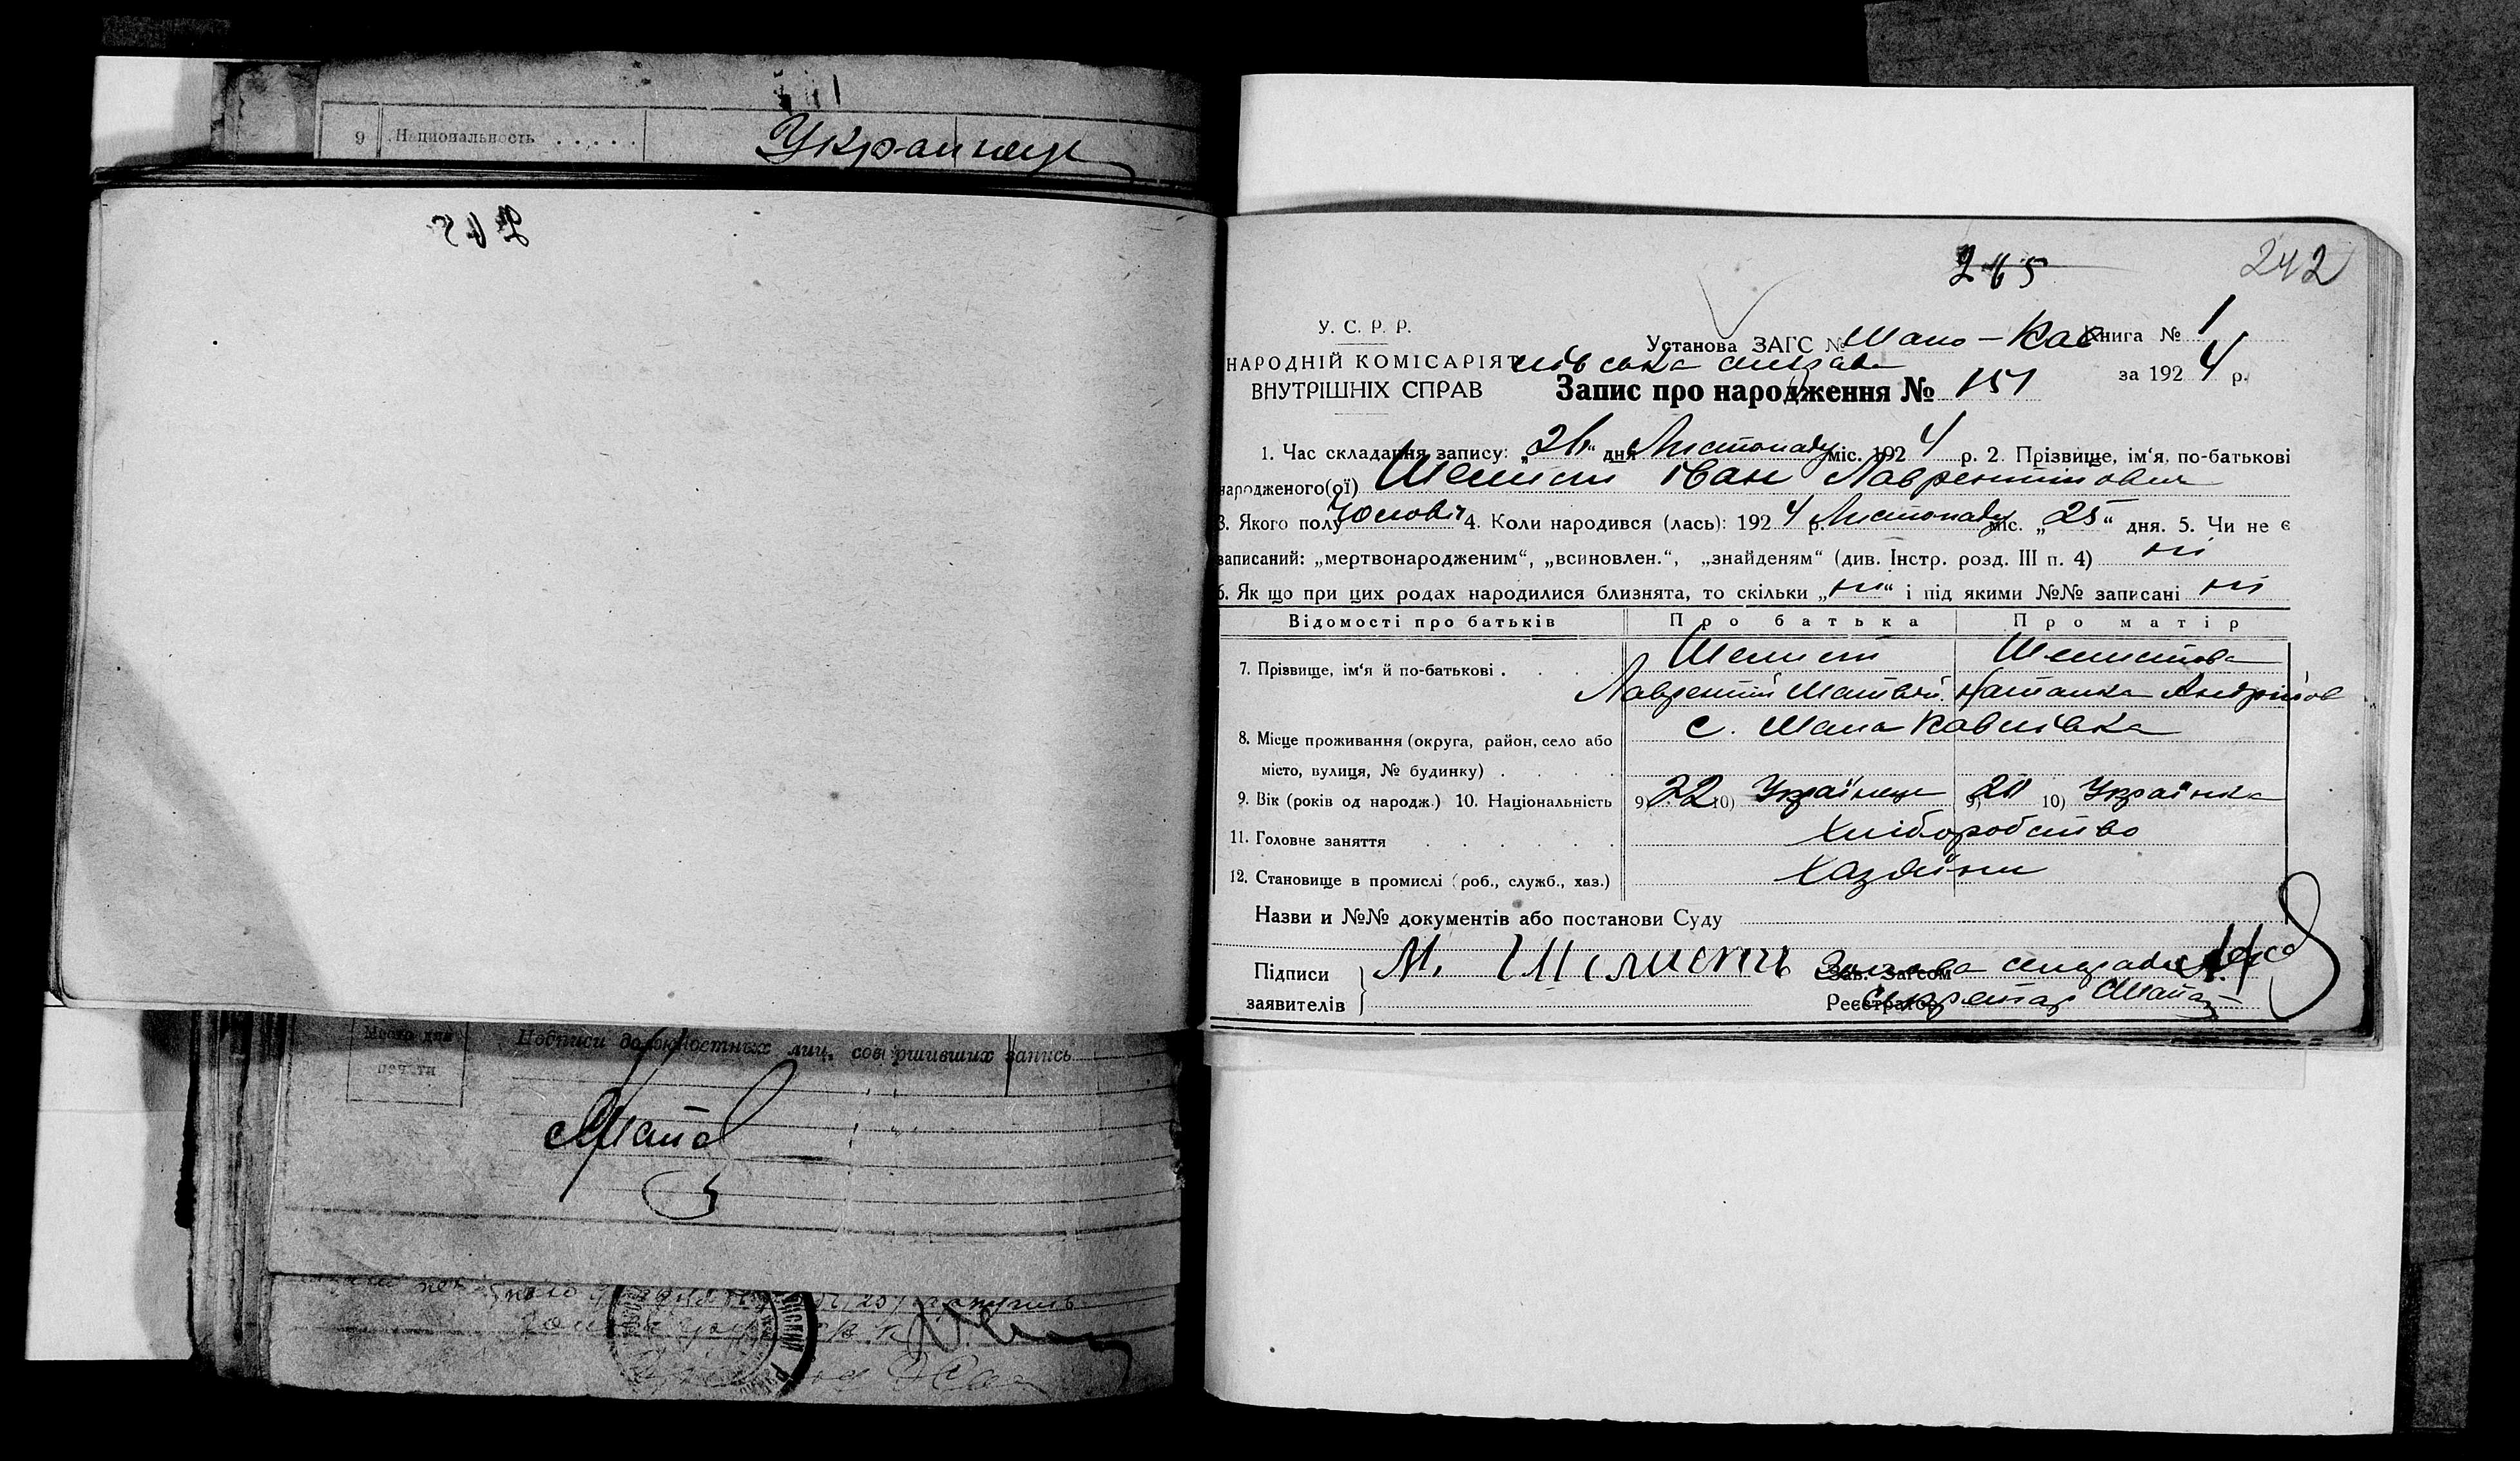 9 Национальность . . . . . Украинец
265
242
У. С. Р. Р.
НАРОДНІЙ КОМІСАРІЯТ
ВНУТРІШНІХ СПРАВ
Установа ЗАГС № Мало-Кав Книга № 1
лівська сільрада
за 1924 р.
Запис про народження № 151
1. Час складання запису: „26“ дня Листопаду міс. 1924 р. 2. Прізвище, ім‘я, по-батькові
народженого(ої) Шелист Іван Лаврентійович
3. Якого полу Чоловіч 4. Коли народився (лась): 1924 р. Листопаду міс. „25“ дня. 5. Чи не є
записаний: „мертвонародженим“, „всиновлен.“, „знайденям“ (див. Інстр. розд. III п. 4) ні
6. Як що при цих родах народилися близнята, то скільки „ні“ і під якими №№ записані ні
Відомості про батьків Про батька Про матір
7. Прізвище, ім‘я й по-батькові . . . Шелист Шелистова
Лаврентій Матвій. Наталка Андріїв
8. Місце проживання (округа, район, село або с. Мала Кавлівка
місто, вулиця, № будинку) . . . .
9. Вік (років од народж.) 10. Національність 9) 22 10) Українець 9) 20 10) Українка
11. Головне заняття . . . . . . Хліборобство
12. Становище в промислі (роб., служб., хаз.) Хазяїни
Назви и №№ документів або постанови Суду
Підписи М. Шелисть Зав. Загсом Голова сільради
заявителів Реєстратор Секретар
Место для
печати
Подписи должностных лиц, совершивших запись